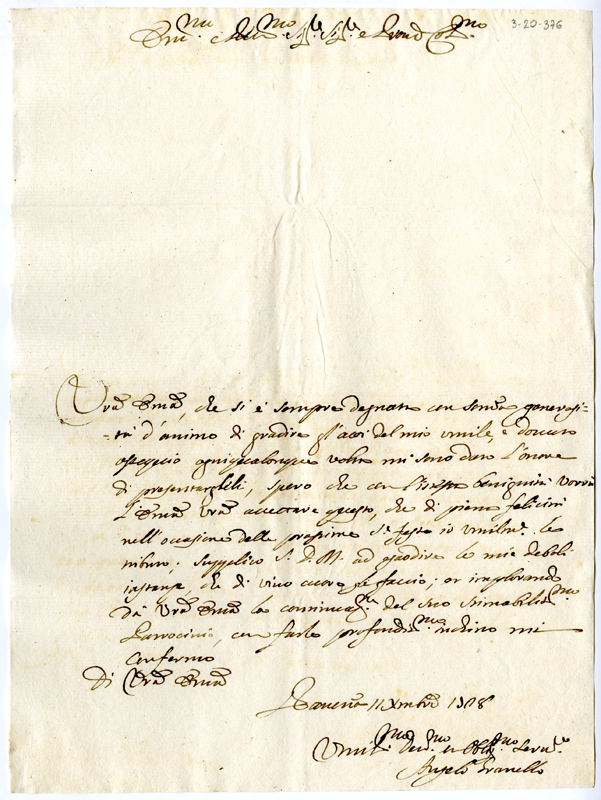 3-20-376
Em.mo e Rev.mo Sig.r Sig.r e Pron Col.mo
Vrã Emã, che si è sempre degnata con somma generosi-
-tà d'animo di gradire gl'atti del mio umile, e dovuto
ossequio ogniqualonque volta mi sono dato l'onore
di presentarglieli, spero che con l'istessa benignità vorrà
l'Emã Vrã accettare questo, che di piena felicità
nell'occasione delle prossime Ss. feste io umilm.e le
tributo; supplico S. D. M. ad esaudire le mie deboli
instanze, che di vivo cuore le faccio; et implorando
da Vrã Emã la continuaz.ne del suo stimabiliss.mo
Patrocinio, con farle profondiss.mo inchino mi
confermo
Di Vrã Emã
Ravenna 11 Xmbre 1728
Umil.mo Dev.mo et Obblig.mo Serv.e
Angelo